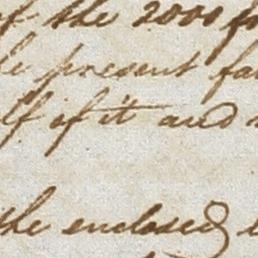 of the 2000 f
he present fa
lf of it and
the enclosed